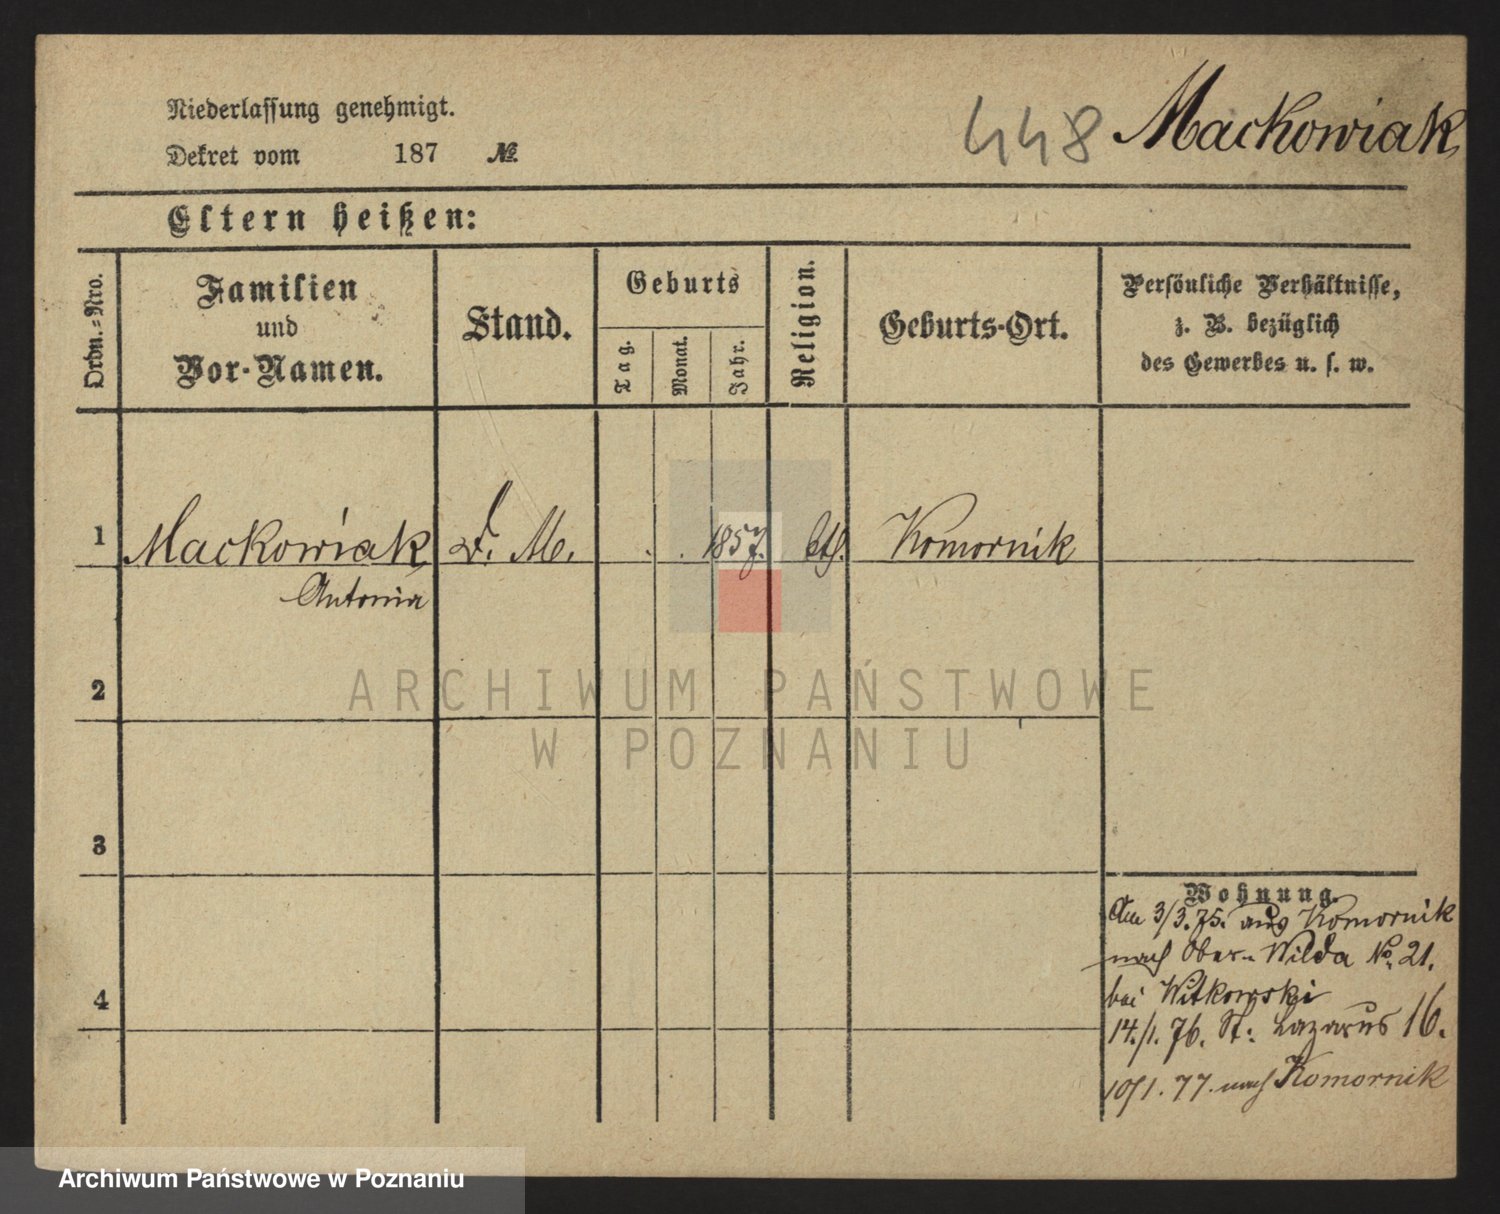 Niederlassung genehmigt.
448 Mackowiak
Dekret vom 187 №
Eltern heißen:
Ordn.-Nro.
Familien
und
Vor-Namen.
Stand.
Geburts
Tag.
Monat.
Jahr.
Religion.
Geburts-Ort.
Persönliche Verhältnisse,
z. B. bezüglich
des Gewerbes u. s. w.
1 Mackowiak D. M. 1857. Cth. Komornik
Antonia
2
3
4
Wohnung.
Am 3/3.75. aus Komornik
nach Ober-Wilda No. 21.
bei Witkowski
14./1. 76. St: Lazarus 16.
10/1. 77. nach Komornik
ARCHIWUM PAŃSTWOWE
W POZNANIU
Archiwum Państwowe w Poznaniu